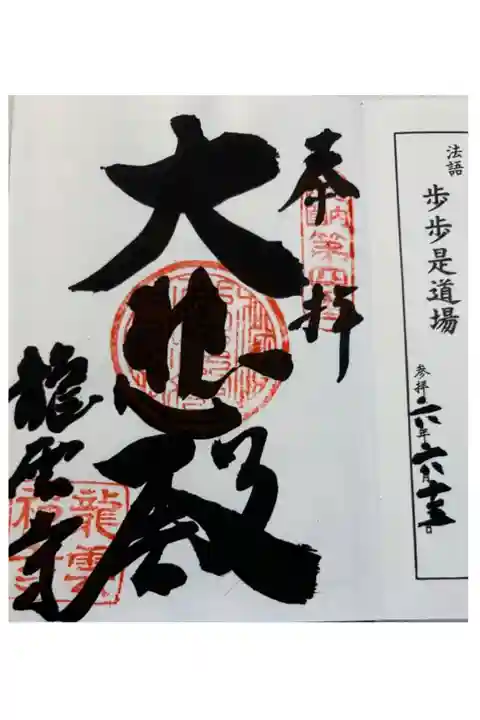 法語
歩歩是道場
参拝 年 月 日
奉拝
第四
大悲殿
龍雲寺
龍雲